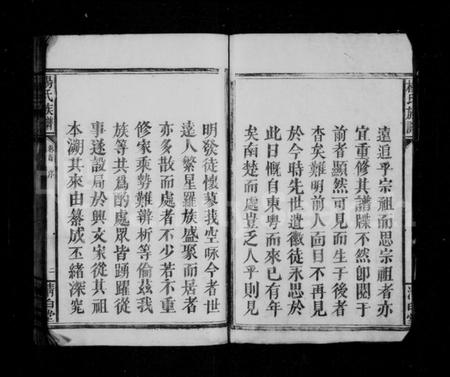 遠追乎宗祖而思宗祖者亦
宜重修其譜牒不然卽閱于
前者顯然可見而生于後者
杳矣難明前人面目不再見
於今時先世遺徽徒永思於
此日慨自東粤而來已有年
矣南楚而處豈乏人乎則見
楊氏族譜
卷首 序
二 清白堂
明發徒懷慕我空咏今者世
遠人繁星羅族盛聚而居者
亦多散而處者不少若不重
修家乘勢難辨析等偷茲我
族等共爲酌處眾皆踴躍從
事遂設局於興文家從其祖
本溯其來由纂成丕緒深窕